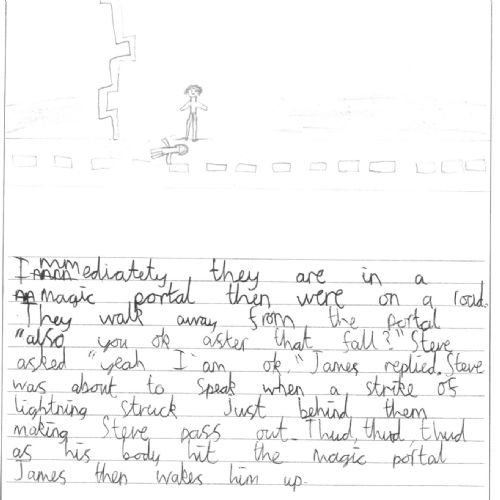 Immediatety they are in a
magic portal then were on a roud.
They walk away from the portal
"also you ok aster that fall?" Steve
asked "yeah I am ok," James replied. Steve
was about to speak when a strike os
lightning struck Just behind them
making Steve pass out. Thud, thud, thud
as his body hit the magic portal
James then wakes him up.